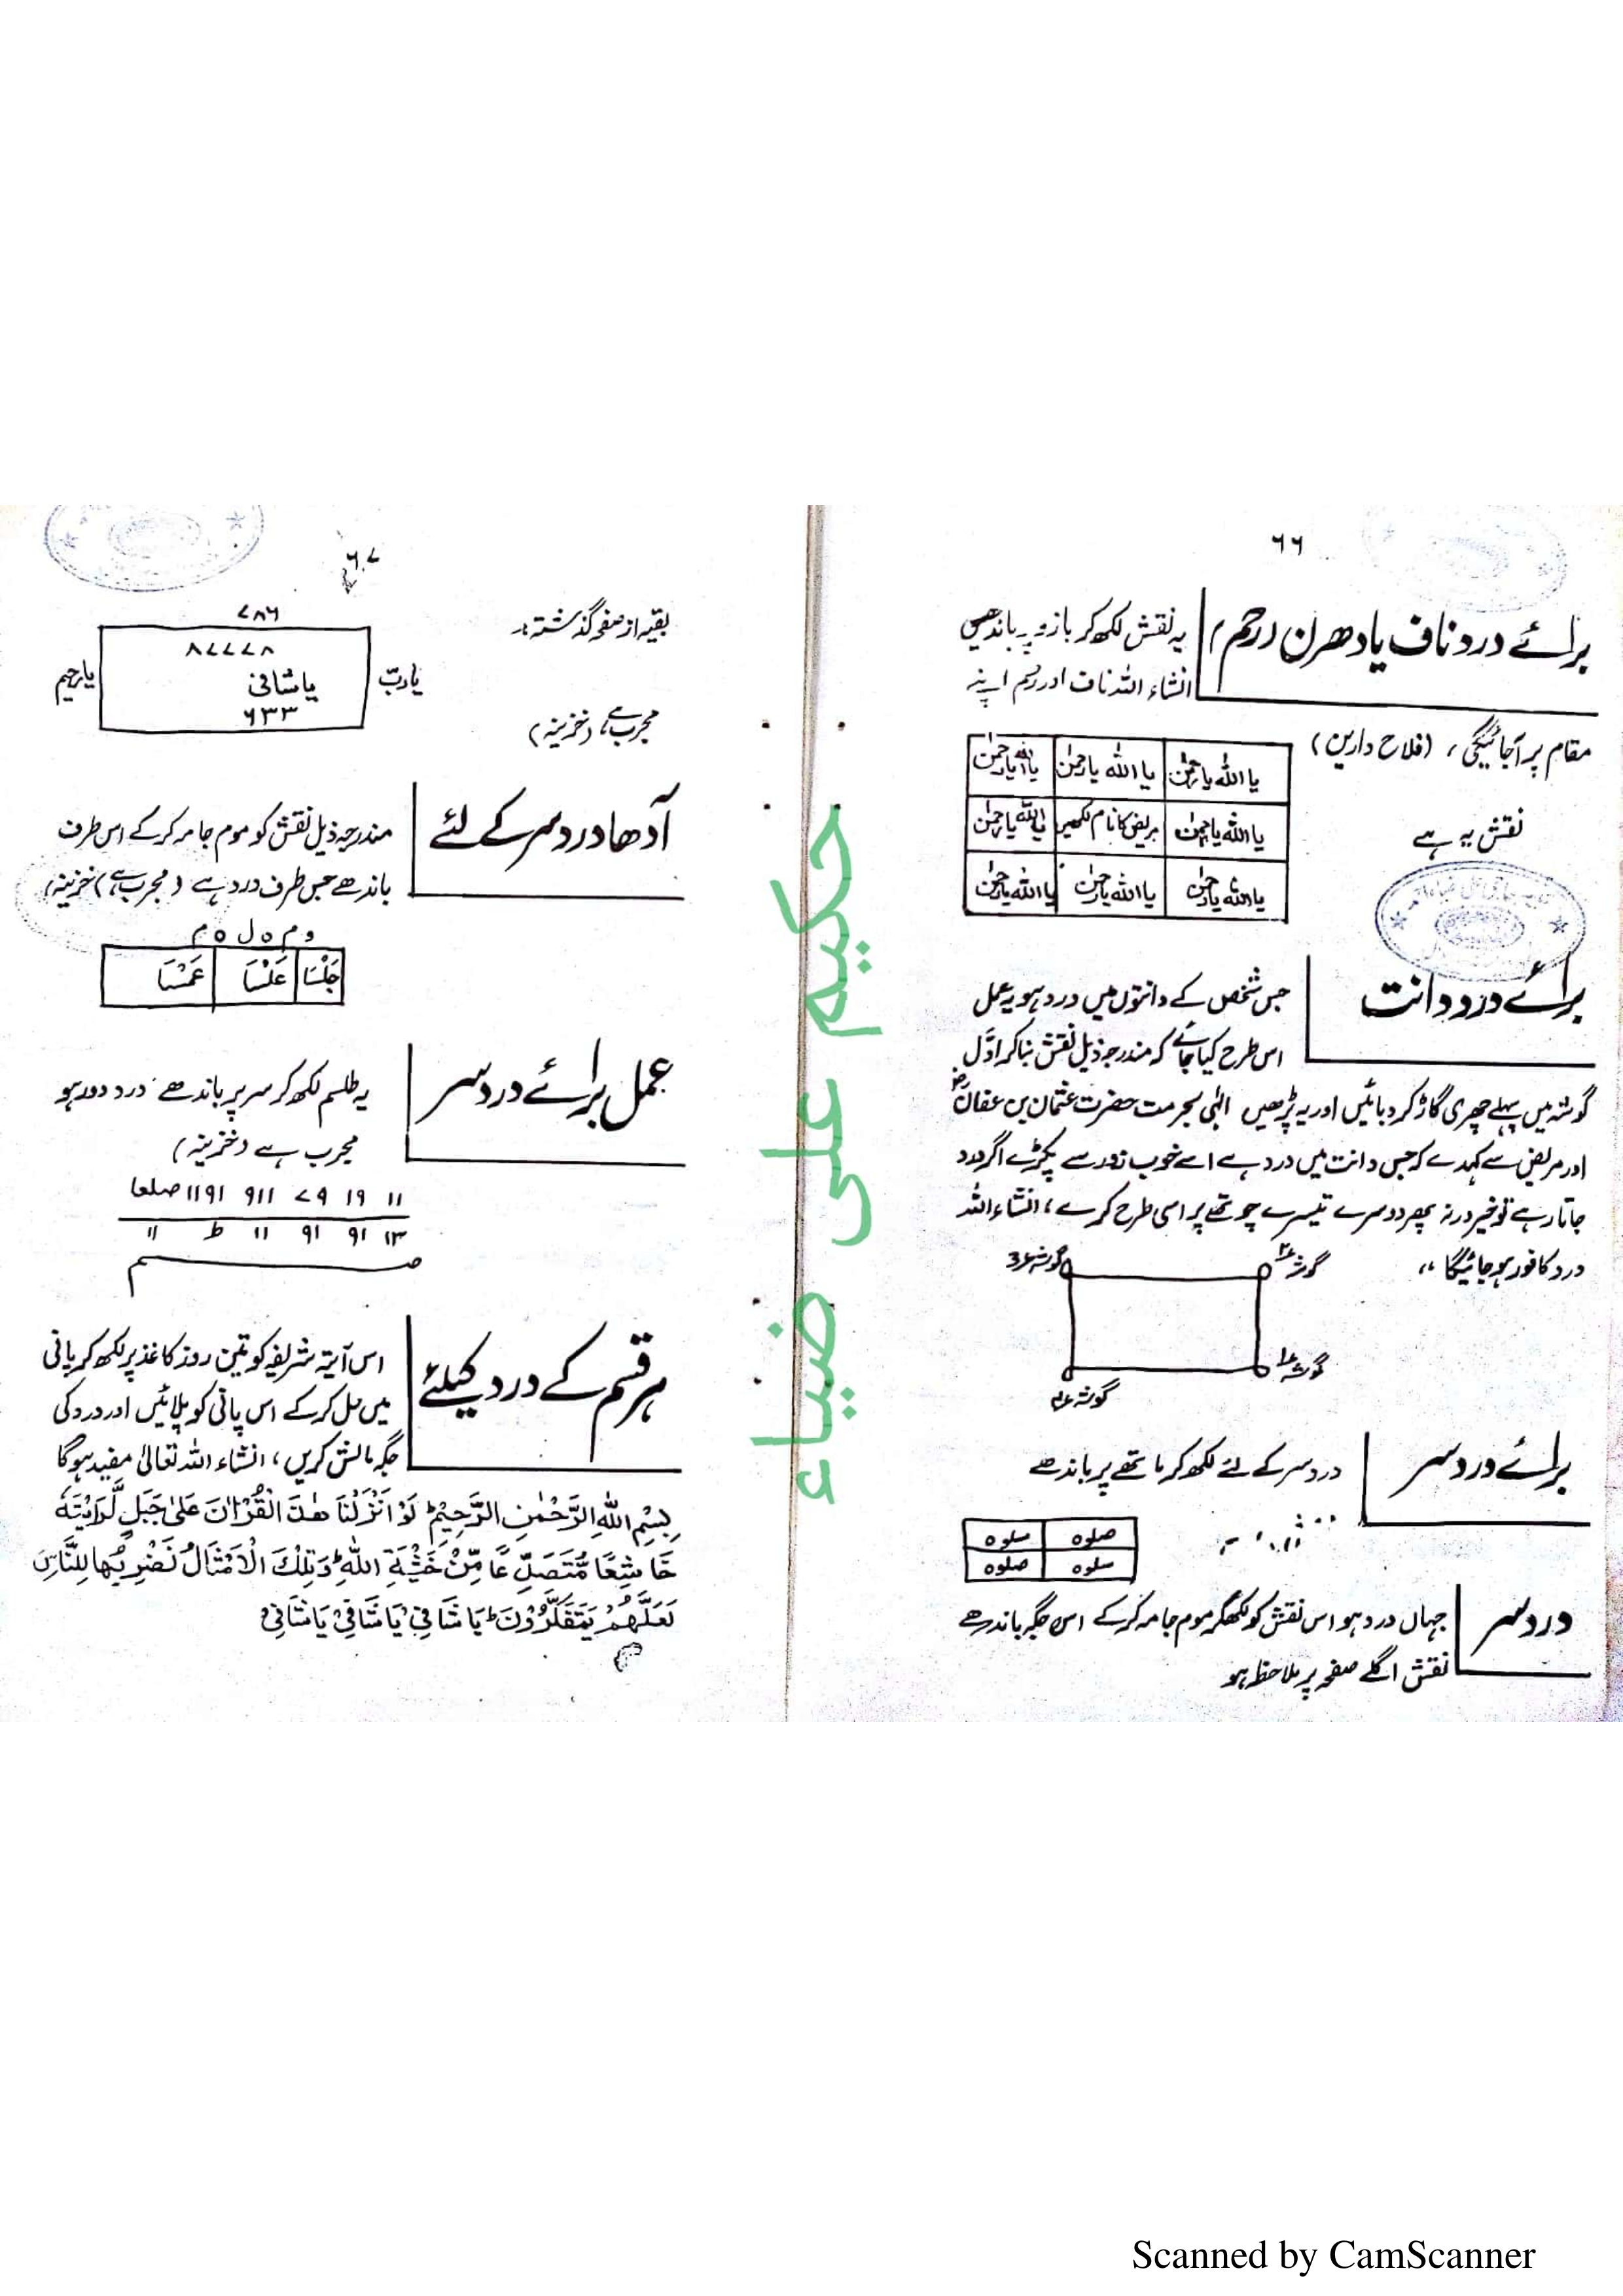 ۶۶
برائے درد ناف یا دھرن (رحم)
یہ نقش لکھ کر بازو پہ باندھیں
انشاء اللہ ناف اور رحم اپنے
مقام پر آجائیگی، (فلاح دارین)
نقش یہ ہے
یا اللہ یا رحمٰن یا اللہ یا رحمٰن یا اللہ یا رحمٰن
یا اللہ یا رحمٰن مریض کا نام لکھیں یا اللہ یا رحمٰن
یا اللہ یا رحمٰن یا اللہ یا رحمٰن یا اللہ یا رحمٰن
برائے درد دانت
جس شخص کے دانتوں میں درد ہو یہ عمل
اس طرح کیا جائے کہ مندرجہ ذیل نقش بنا کر اوّل
گوشہ میں پہلے چھری گاڑ کر دبائیں اور یہ پڑھیں الٰہی بحرمت حضرت عثمان بن عفانؓ
اور مریض سے کہدے کہ جس دانت میں درد ہے اسے خوب زور سے پکڑے اگر درد
جاتا رہے تو خیر ورنہ پھر دوسرے تیسرے چوتھے پر اسی طرح کرے، انشاء اللہ
درد کافور ہو جائیگا،،
گوشہ ۲ گوشہ ۳
گوشہ ۱ گوشہ ۴
برائے درد سر
درد سر کے لئے لکھ کر ماتھے پر باندھے
صلوہ سلوہ
سلوہ صلوہ
درد سر
جہاں درد ہو اس نقش کو لکھکر موم جامہ کرکے اس جگہ باندھے
نقش اگلے صفحہ پر ملاحظہ ہو
حکیم علی ضیاء
۶۷
بقیہ از صفحہ گذشتہ:۔
۷۸۶
۸۷۷۷۸
یا شافی
۶۳۳
یا ربّ
یا رحیم
مجرب ہے، (خزینہ)
آدھا درد سر کے لئے
مندرجہ ذیل نقش کو موم جامہ کرکے اس طرف
باندھے جس طرف درد ہے (مجرب ہے) خزینہ)
و م ہ ل ہ م
جَلْسَا عَلْسَا عَمْسَا
عمل برائے درد سر
یہ طلسم لکھ کر سر پر باندھے درد دور ہو
مجرب ہے (خزینہ)
۱۱ ۱۹ ۷۹ ۹۱۱ ۱۱۹۱ صلعا
۱۳ ۹۱ ۹۱ ۱۱ ط ۱۱
ہر قسم کے درد کیلئے
اس آیۃ شریفہ کو تین روز کاغذ پر لکھ کر پانی
میں حل کرکے اس پانی کو پلائیں اور درد کی
جگہ مالش کریں، انشاء اللہ تعالیٰ مفید ہوگا
بِسْمِ اللّٰهِ الرَّحْمٰنِ الرَّحِیْمِ لَوْ اَنْزَلْنَا هٰذَا الْقُرْاٰنَ عَلٰی جَبَلٍ لَّرَاَیْتَهٗ
خَاشِعًا مُّتَصَدِّعًا مِّنْ خَشْیَةِ اللّٰهِ وَتِلْكَ الْاَمْثَالُ نَضْرِبُهَا لِلنَّاسِ
لَعَلَّهُمْ یَتَفَكَّرُوْنَ یَا شَافِیْ یَا شَافِیْ یَا شَافِیْ
Scanned by CamScanner